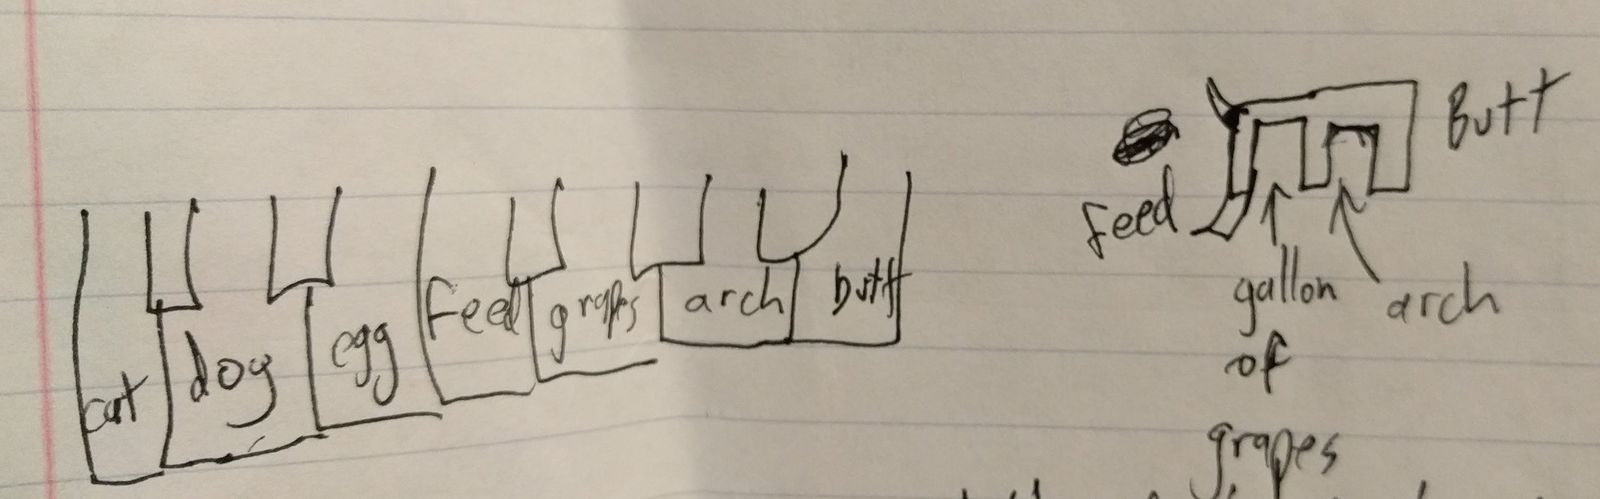 cat dog egg Feed grapes arch butt
Butt
Feed
gallon
of
grapes
arch